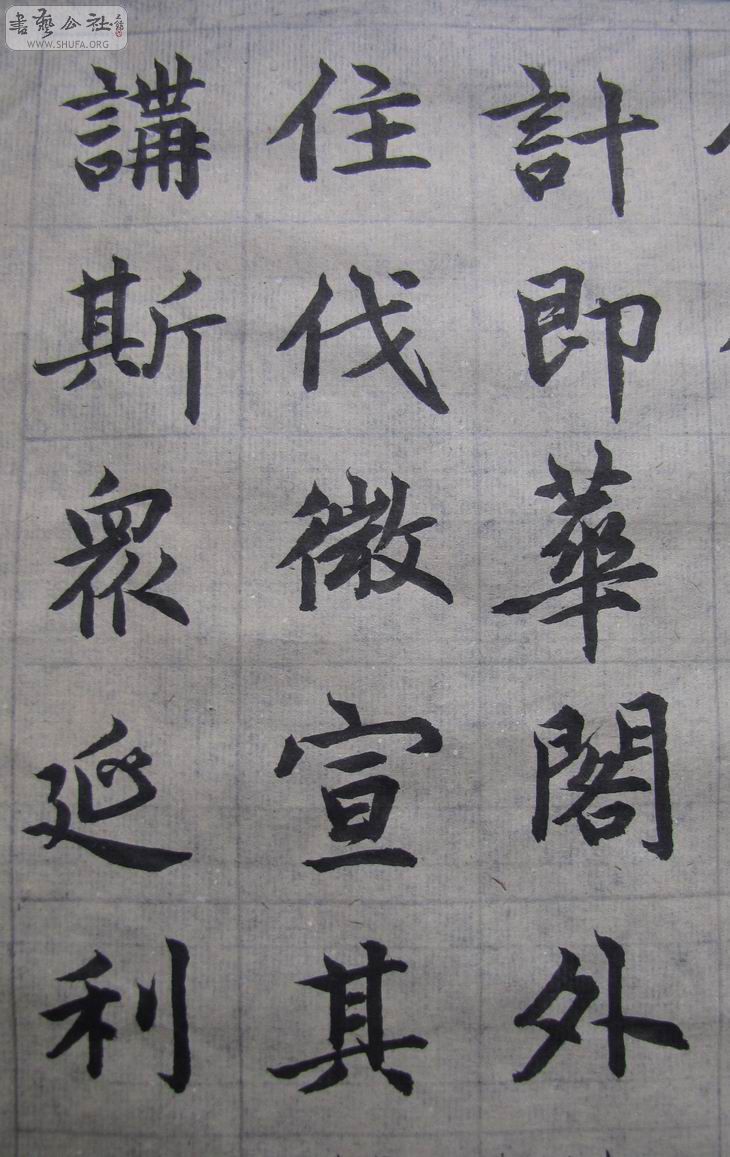 書藝公社
WWW.SHUFA.ORG
計即華閣外
住伐微宣其
講斯眾延利